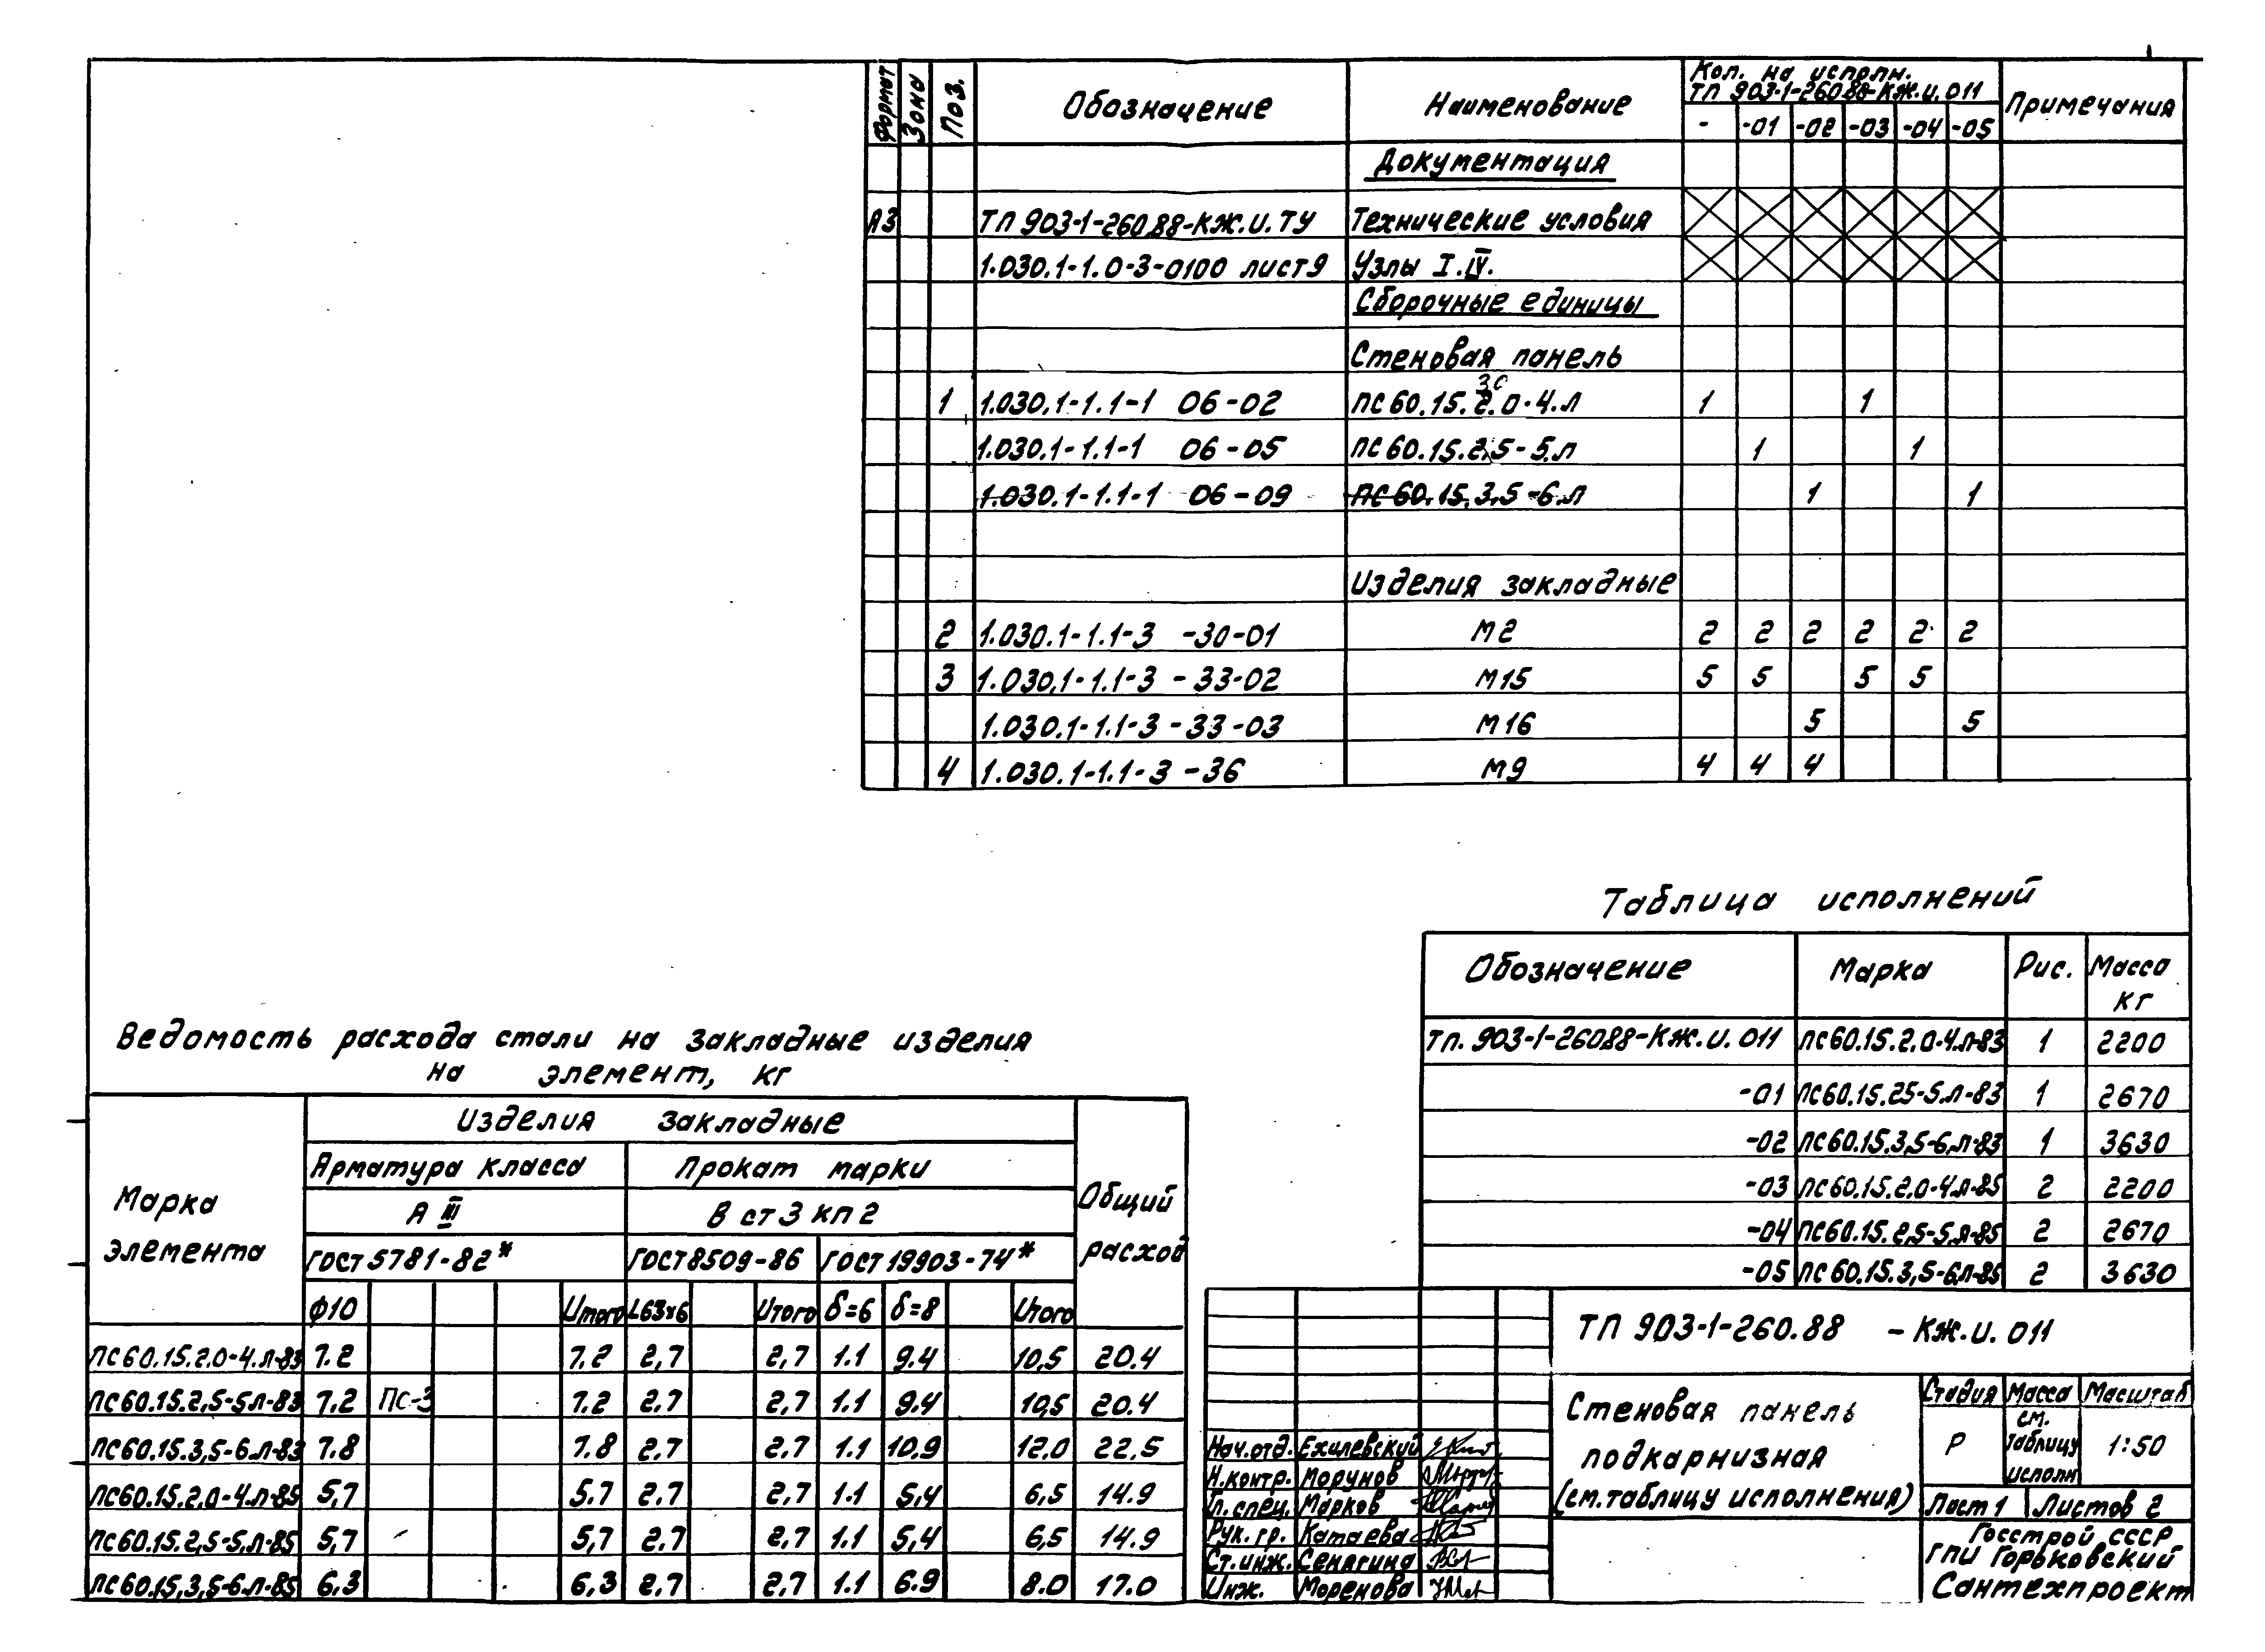 Формат Зона Поз. Обозначение Наименование Кол. на исполн. ТП 903-1-260.88-КЖ.И.011 Примечания
- -01 -02 -03 -04 -05
Документация
А3 ТП 903-1-260.88-КЖ.И.ТУ Технические условия
1.030.1-1.0-3-0100 лист 9 Узлы I.IV.
Сборочные единицы
Стеновая панель
1 1.030.1-1.1-1 06-02 ПС60.15.2.0-4.Л 1 1
1.030.1-1.1-1 06-05 ПС60.15.2,5-5.Л 1 1
1.030.1-1.1-1 06-09 ПС60.15.3,5-6.Л 1 1
Изделия закладные
2 1.030.1-1.1-3 -30-01 М2 2 2 2 2 2 2
3 1.030.1-1.1-3 -33-02 М15 5 5 5 5
1.030.1-1.1-3 -33-03 М16 5 5
4 1.030.1-1.1-3 -36 М9 4 4 4
Таблица исполнений
Обозначение Марка Рис. Масса кг
ТП. 903-1-260.88-КЖ.И.011 ПС60.15.2.0-4.Л-83 1 2200
-01 ПС60.15.25-5.Л-83 1 2670
-02 ПС60.15.3,5-6.Л-83 1 3630
-03 ПС60.15.2.0-4.Л-85 2 2200
-04 ПС60.15.2,5-5.Л-85 2 2670
-05 ПС60.15.3,5-6.Л-85 2 3630
Ведомость расхода стали на закладные изделия
на элемент, кг
Марка элемента
Изделия закладные
Общий расход
Арматура класса Прокат марки
А III В ст 3 кп 2
ГОСТ 5781-82* ГОСТ 8509-86 ГОСТ 19903-74*
Ф10 Итого L63х6 Итого δ=6 δ=8 Итого
ПС60.15.2.0-4.Л-83 7.2 7.2 2,7 2,7 1.1 9.4 10,5 20.4
ПС60.15.2,5-5Л-83 7.2 ПС-3 7.2 2.7 2,7 1.1 9.4 10,5 20.4
ПС60.15.3,5-6.Л-83 7.8 7.8 2.7 2.7 1.1 10.9 12.0 22.5
ПС60.15.2.0-4.Л-85 5,7 5.7 2.7 2.7 1.1 5,4 6,5 14.9
ПС60.15.2,5-5.Л-85 5,7 5,7 2.7 2.7 1.1 5,4 6,5 14.9
ПС60.15,3,5-6.Л-85 6.3 6,3 2.7 2.7 1.1 6.9 8.0 17.0
ТП 903-1-260.88 -КЖ.И.011
Стеновая панель
подкарнизная
(см.таблицу исполнения)
Стадия Масса Масштаб
Р см. таблицу исполн 1:50
Лист 1 Листов 2
Нач.отд. Ехилевский
Н.контр. Морунов
Гл.спец. Марков
Рук.гр. Катаева
Ст.инж. Сенягина
Инж. Моренова
Госстрой СССР
ГПИ Горьковский
Сантехпроект